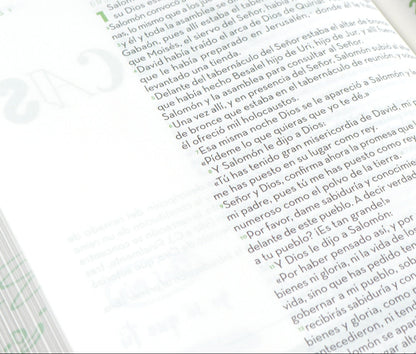 su Dios esta
Salomón convocó
nas, lo mismo que a los pa
y él y toda la asamblea se di
Gabaón, pues allí estaba el tabe
que Moisés, el siervo del Señor,
David había traído el arca de Dios de Quiriat
que le había preparado en Jerusalén, donde él l
levantado una tienda.
Delante del tabernáculo del Señor estaba el altar de bro
que había hecho Besalel hijo de Uri, hijo de Jur, y allí fuero
Salomón y la asamblea para consultar al Señor.
Una vez allí, y en presencia del Señor, Salomón subió al a
de bronce que estaba en el tabernáculo de reunión, y so
él ofreció mil holocaustos.
Esa misma noche Dios se le apareció a Salomón y
«Pídeme lo que quieras que yo te dé.»
Y Salomón le dijo a Dios:
«Tú has tenido gran misericordia de David, mi
me has puesto en su lugar como rey.
Señor y Dios, confirma ahora la promesa que l
mi padre, pues tú me has puesto como rey
numeroso como el polvo de la tierra.
Por favor, dame sabiduría y conocimi
delante de este pueblo. A decir verdad
a tu pueblo? ¡Es tan grande!»
Y Dios le dijo a Salomón:
«Por haber pensado así, y po
bienes ni gloria, ni la vida de los
vida, sino que has pedido ten
gobernar a mi pueblo, sob
recibirás sabiduría y co
bienes y gloria, como
antecedieron, ni tend